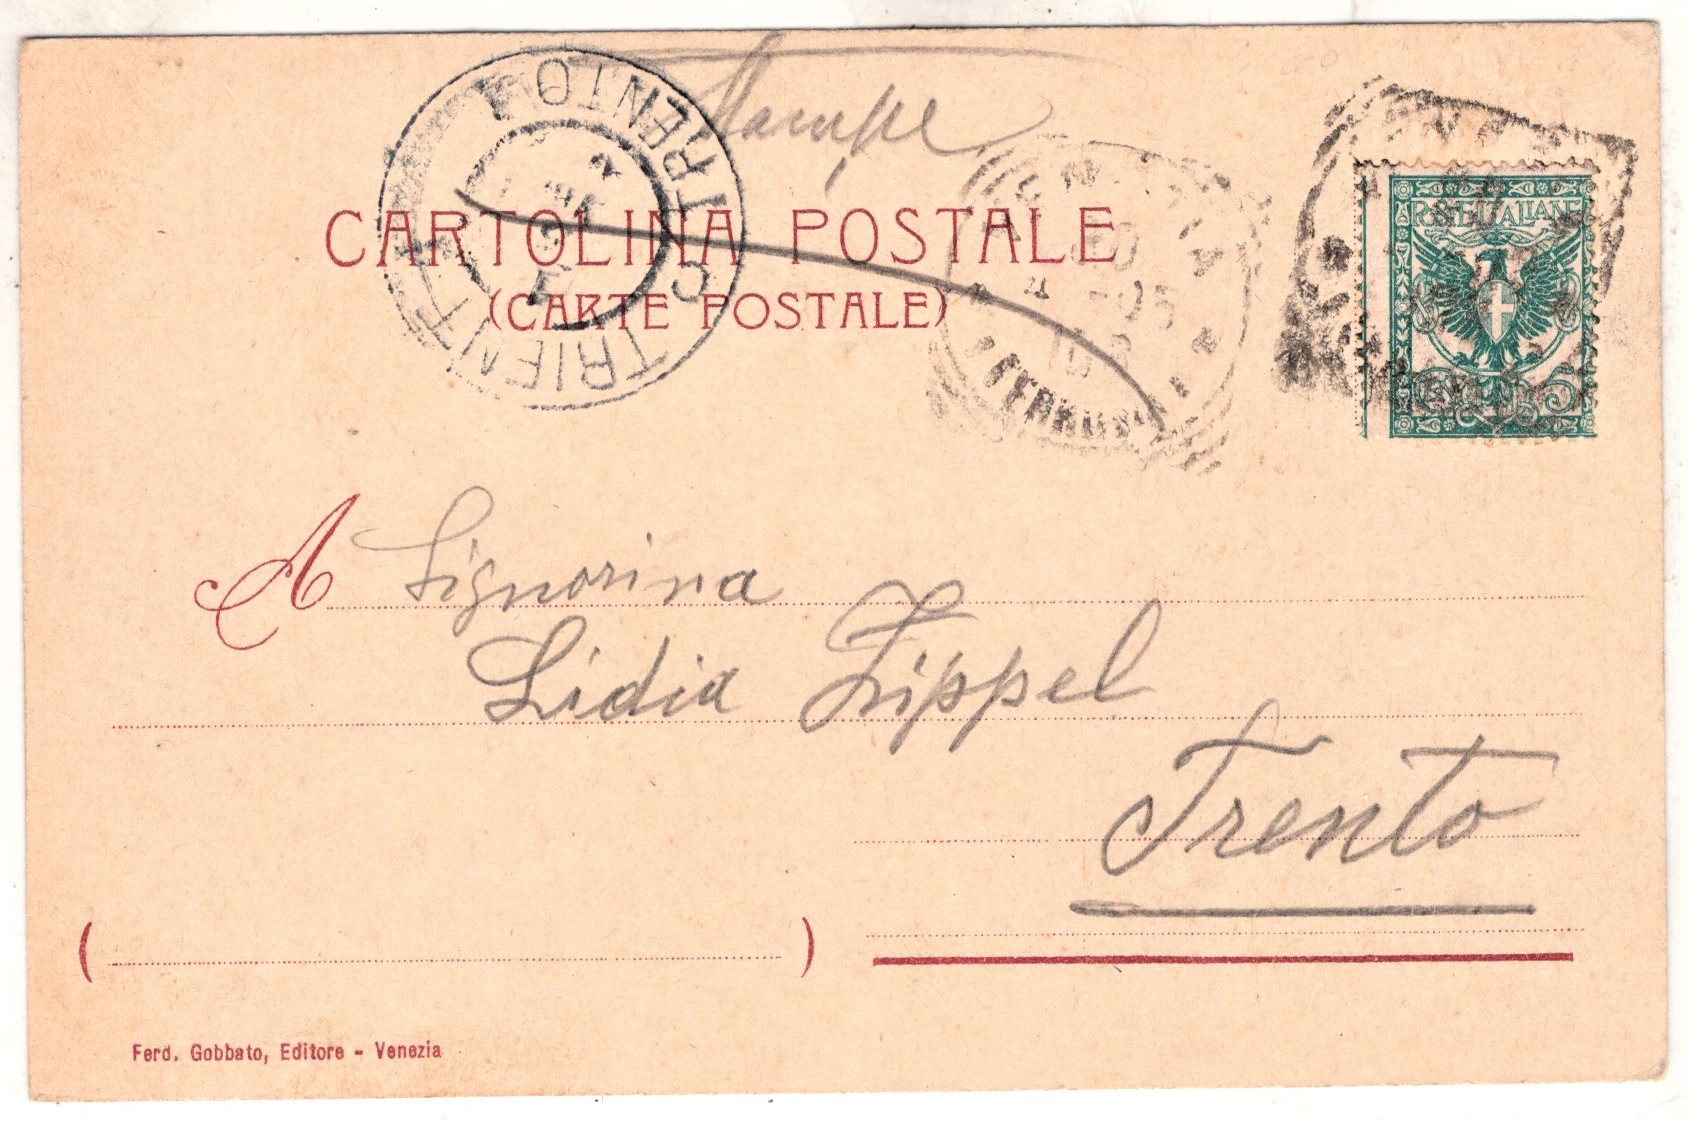 Stampe
CARTOLINA POSTALE
(CARTE POSTALE)
TRIENT
C TRENTO
FERROVIA
POSTE ITALIANE
A Signorina
Lidia Zippel
Trento
( )
Ferd. Gobbato, Editore - Venezia